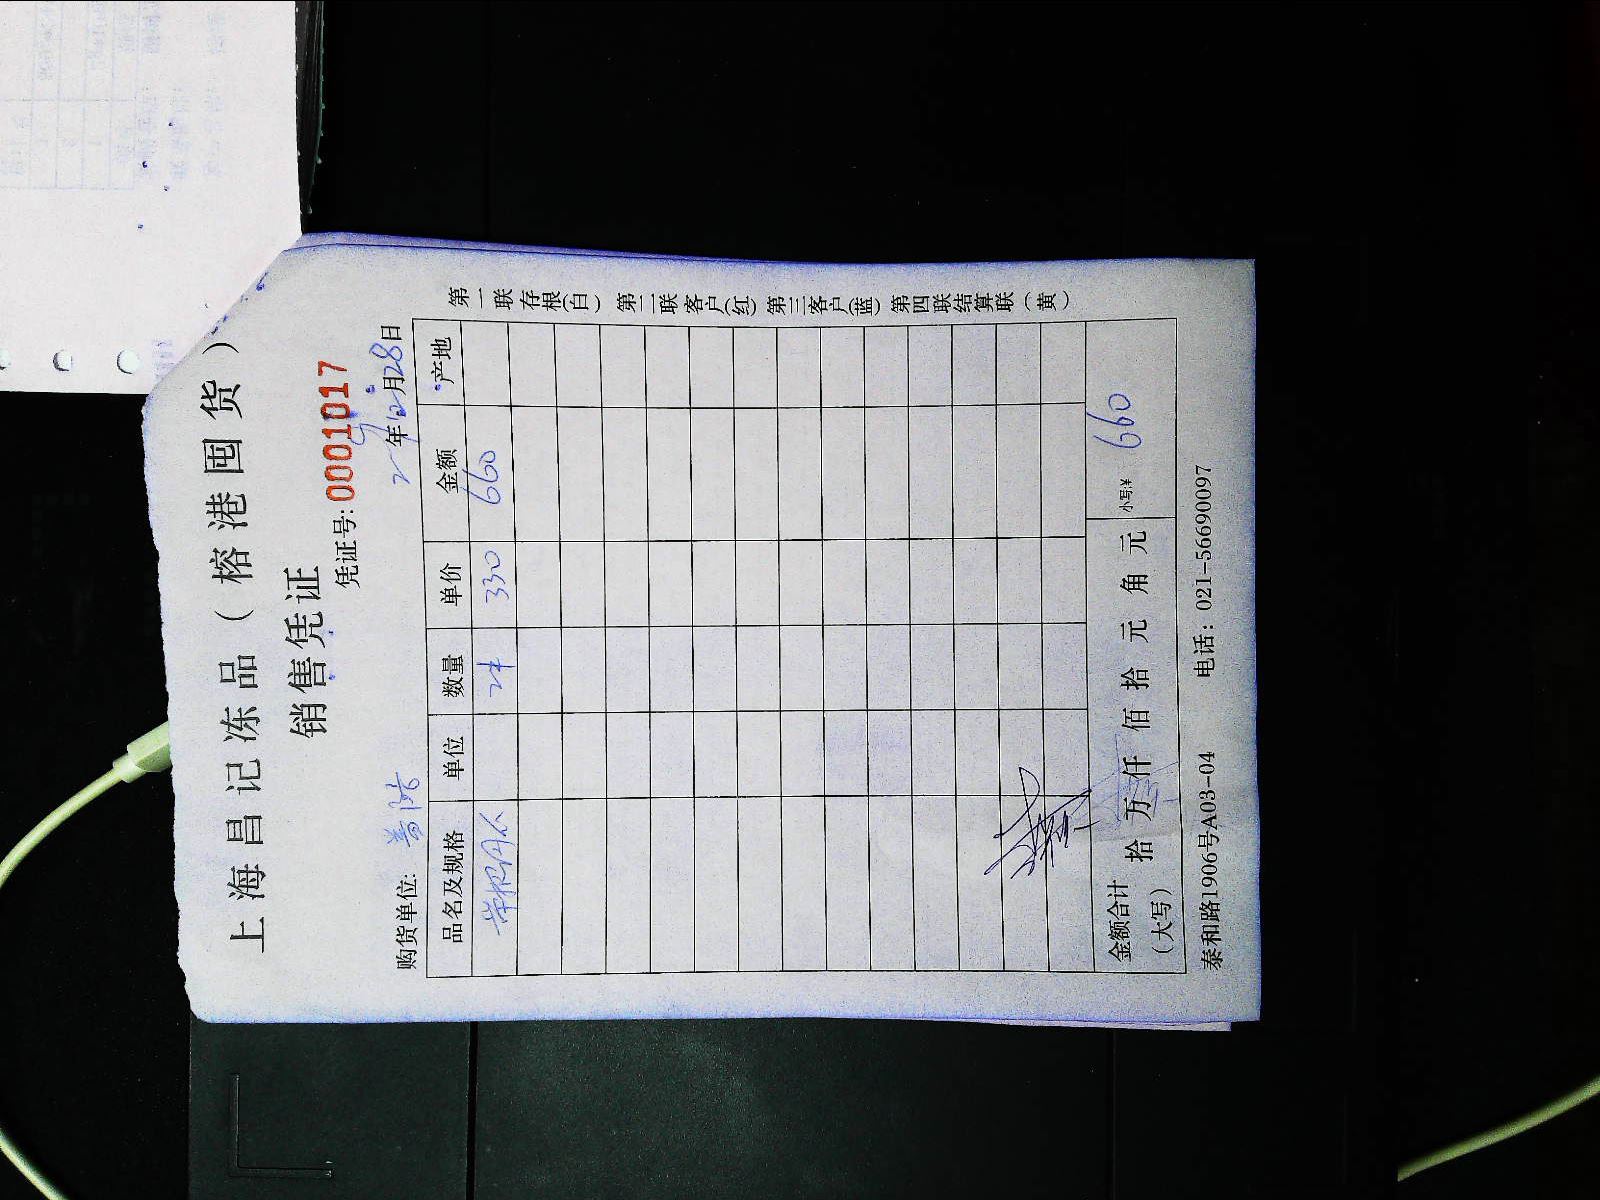 上海昌记冻品（榕港囤货）
销售凭证
凭证号: 0001017
年12月28日
购货单位: 普陀
品名及规格 单位 数量 单价 金额 产地
2件 330 660
金额合计（大写） 拾 万 仟 佰 拾 元 角 元 小写:¥ 660
泰和路1906号A03-04 电话: 021-56690097
第一联存根(白) 第二联客户(红) 第三客户(蓝) 第四联结算联(黄)